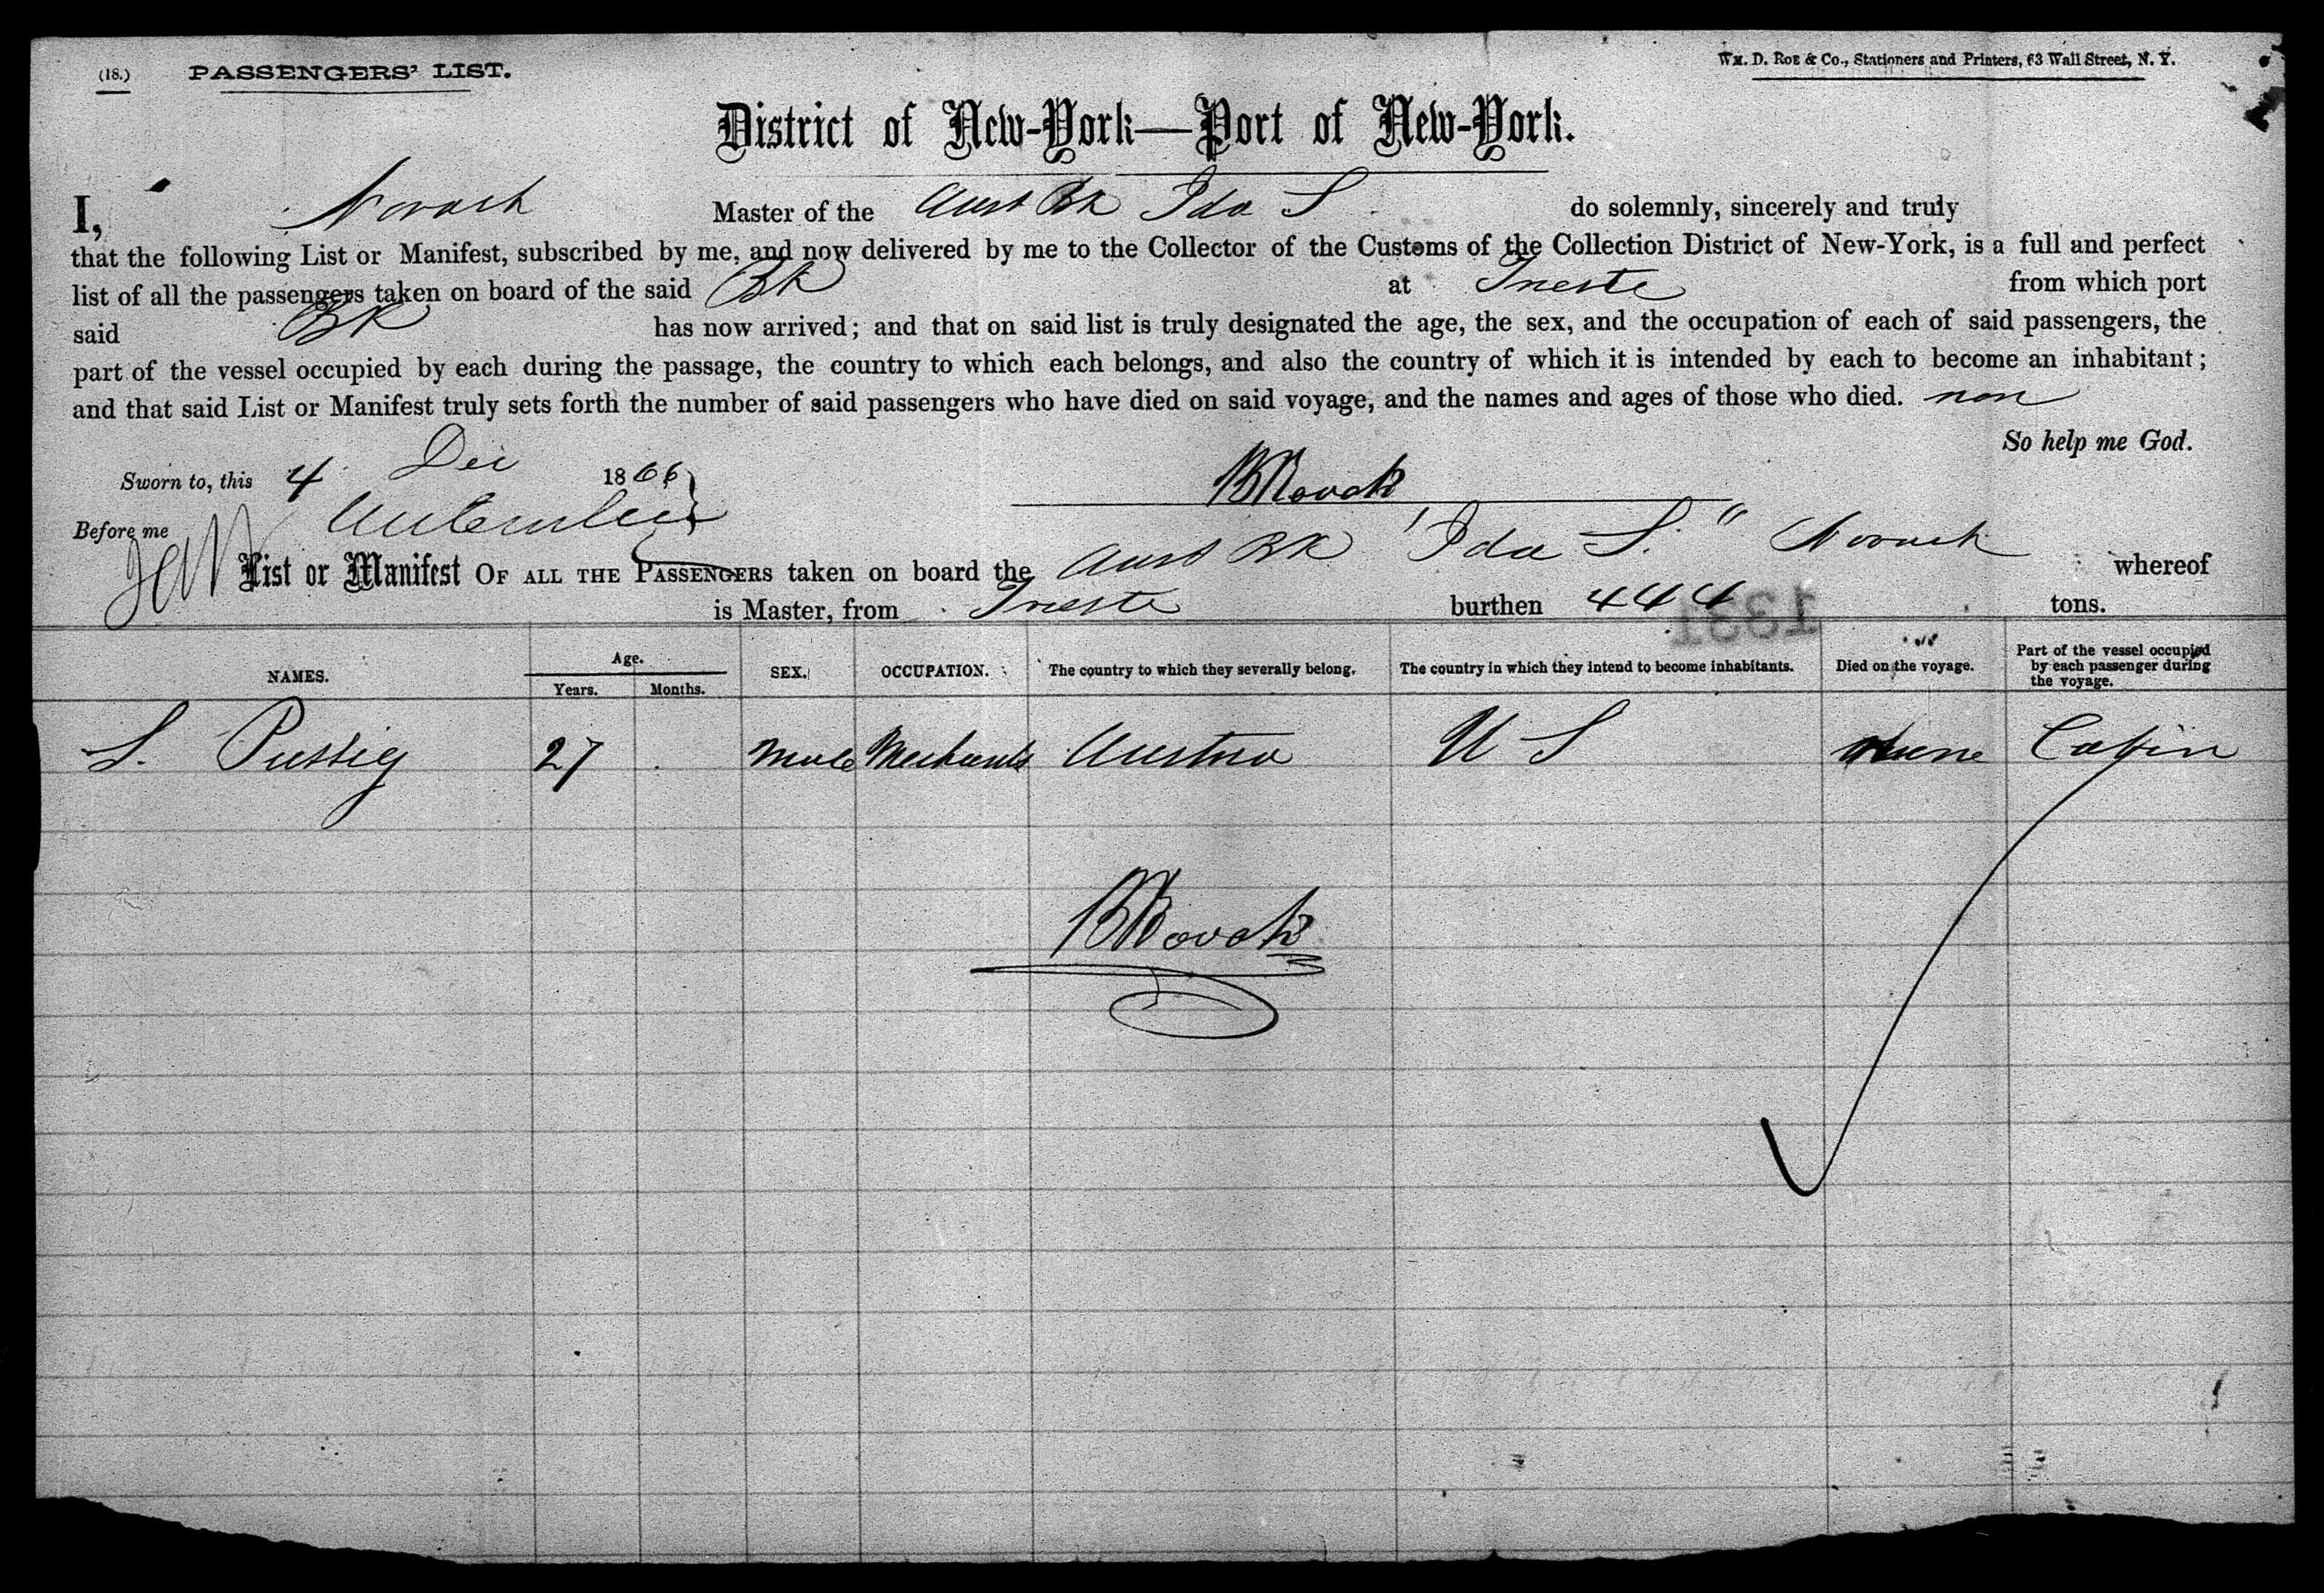 (18.) PASSENGERS' LIST.
Wm. D. Roe & Co., Stationers and Printers, 63 Wall Street, N. Y.
District of New-York—Port of New-York.
I, Novack Master of the Aust Bk Ida S do solemnly, sincerely and truly
that the following List or Manifest, subscribed by me, and now delivered by me to the Collector of the Customs of the Collection District of New-York, is a full and perfect
list of all the passengers taken on board of the said Bk at Trieste from which port
said Bk has now arrived; and that on said list is truly designated the age, the sex, and the occupation of each of said passengers, the
part of the vessel occupied by each during the passage, the country to which each belongs, and also the country of which it is intended by each to become an inhabitant;
and that said List or Manifest truly sets forth the number of said passengers who have died on said voyage, and the names and ages of those who died. non
So help me God.
Sworn to, this 4 Dec 1866
BNovak
Before me
List or Manifest OF ALL THE PASSENGERS taken on board the Aust Bk "Ida S." Novack whereof
is Master, from Trieste burthen 444 tons.
1331
NAMES. Age. Years. Months. SEX. OCCUPATION. The country to which they severally belong. The country in which they intend to become inhabitants. Died on the voyage. Part of the vessel occupied by each passenger during the voyage.
S. 27 Male Austria U S none Cabin
BNovak